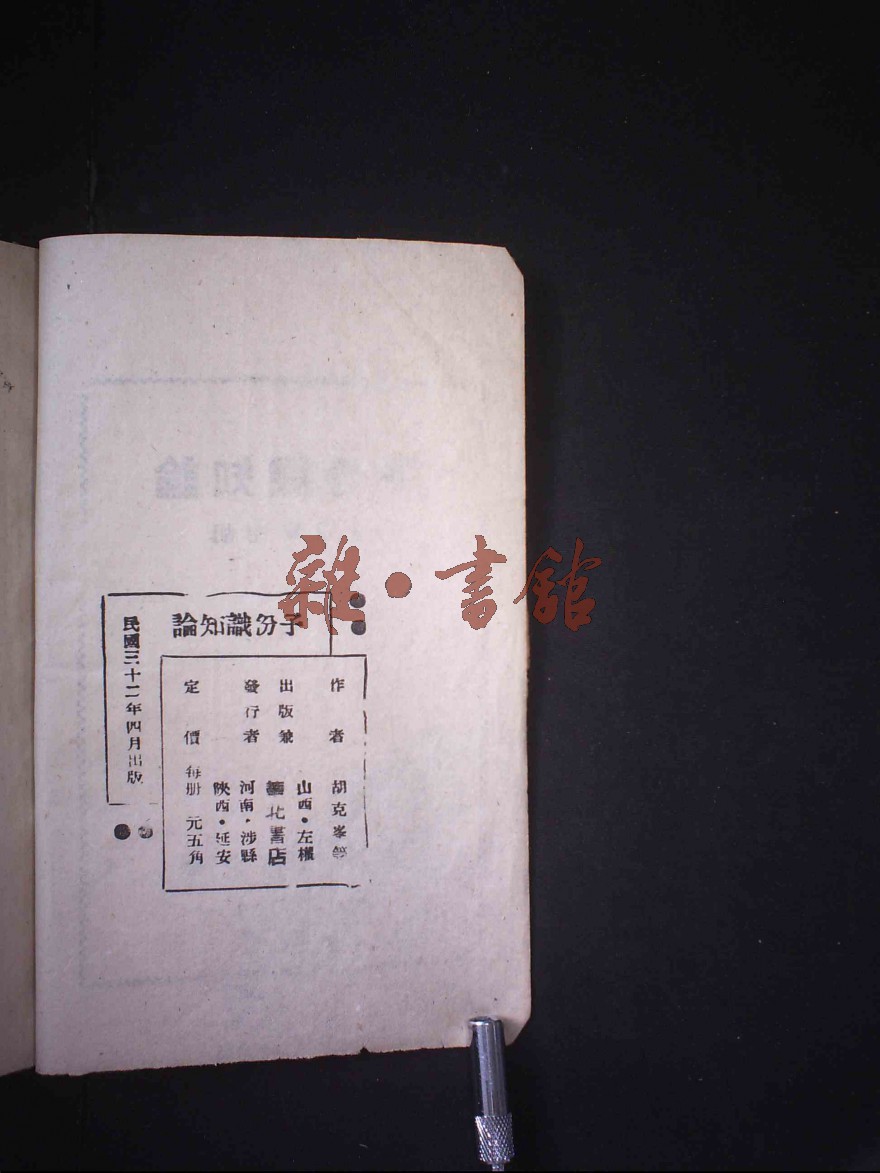 雜·書館
論知識份子
作者 胡克峯等
山西·左權
出版兼 華北書店
發行者 河南·涉縣
陝西·延安
定價 每册 元五角
民國三十二年四月出版